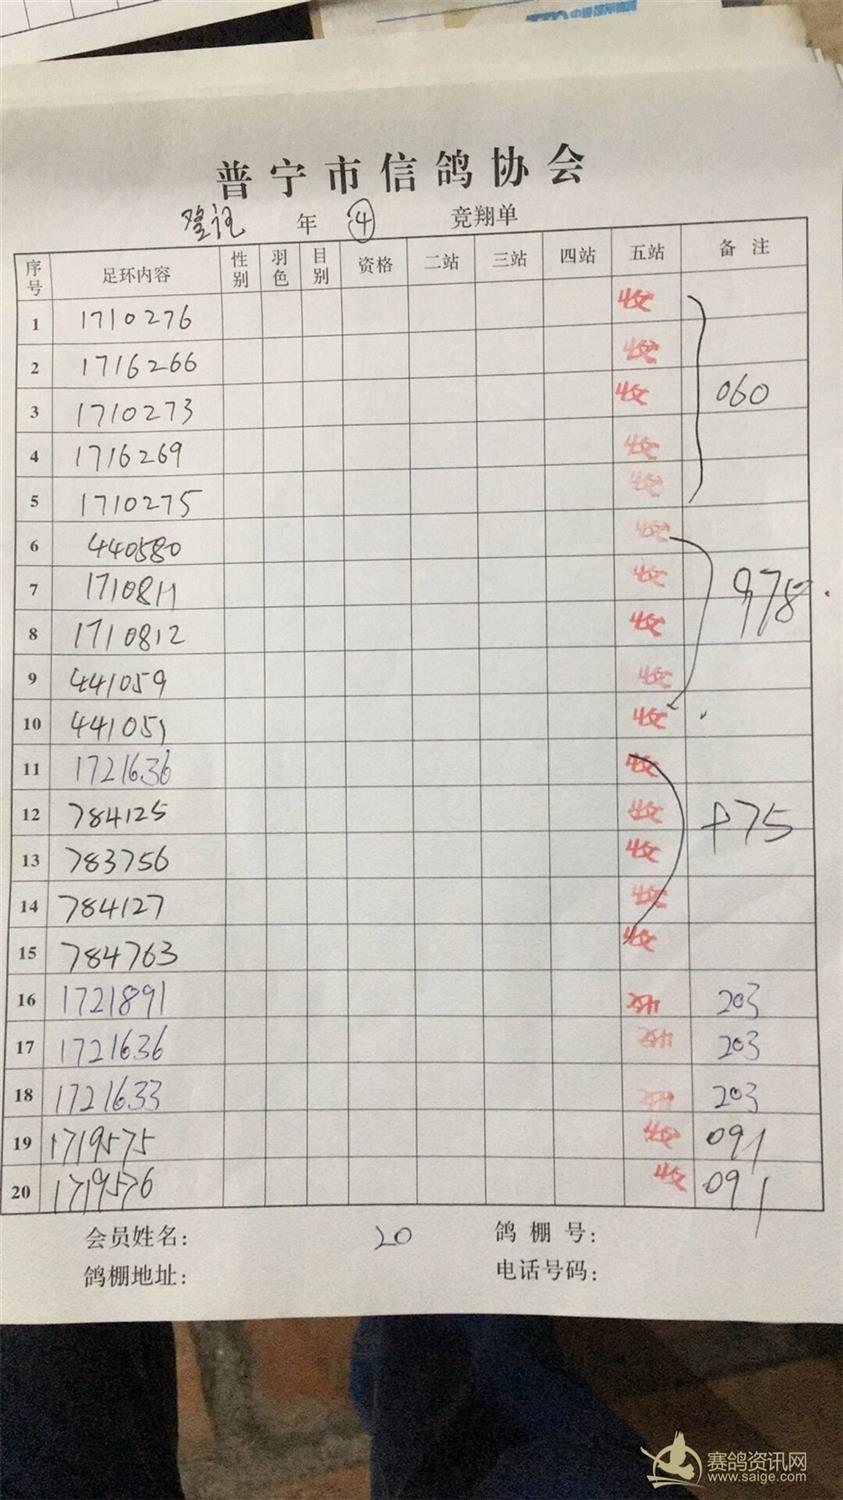 普宁市信鸽协会
登记 年 ④ 竞翔单
序号 足环内容 性别 羽色 目别 资格 二站 三站 四站 五站 备注
1 1710276 收
2 1716266 收
3 1710273 收 060
4 1716269 收
5 1710275 收
6 440580 收
7 1710811 收 978
8 1710812 收
9 441059 收
10 441051 收
11 1721636 收
12 784125 收 +75
13 783756 收
14 784127 收
15 784763 收
16 1721891 收 203
17 1721636 收 203
18 1721633 收 203
19 1719575 收 091
20 1719576 收 091
会员姓名: 20 鸽棚号:
鸽棚地址: 电话号码:
赛鸽资讯网
www.saige.com